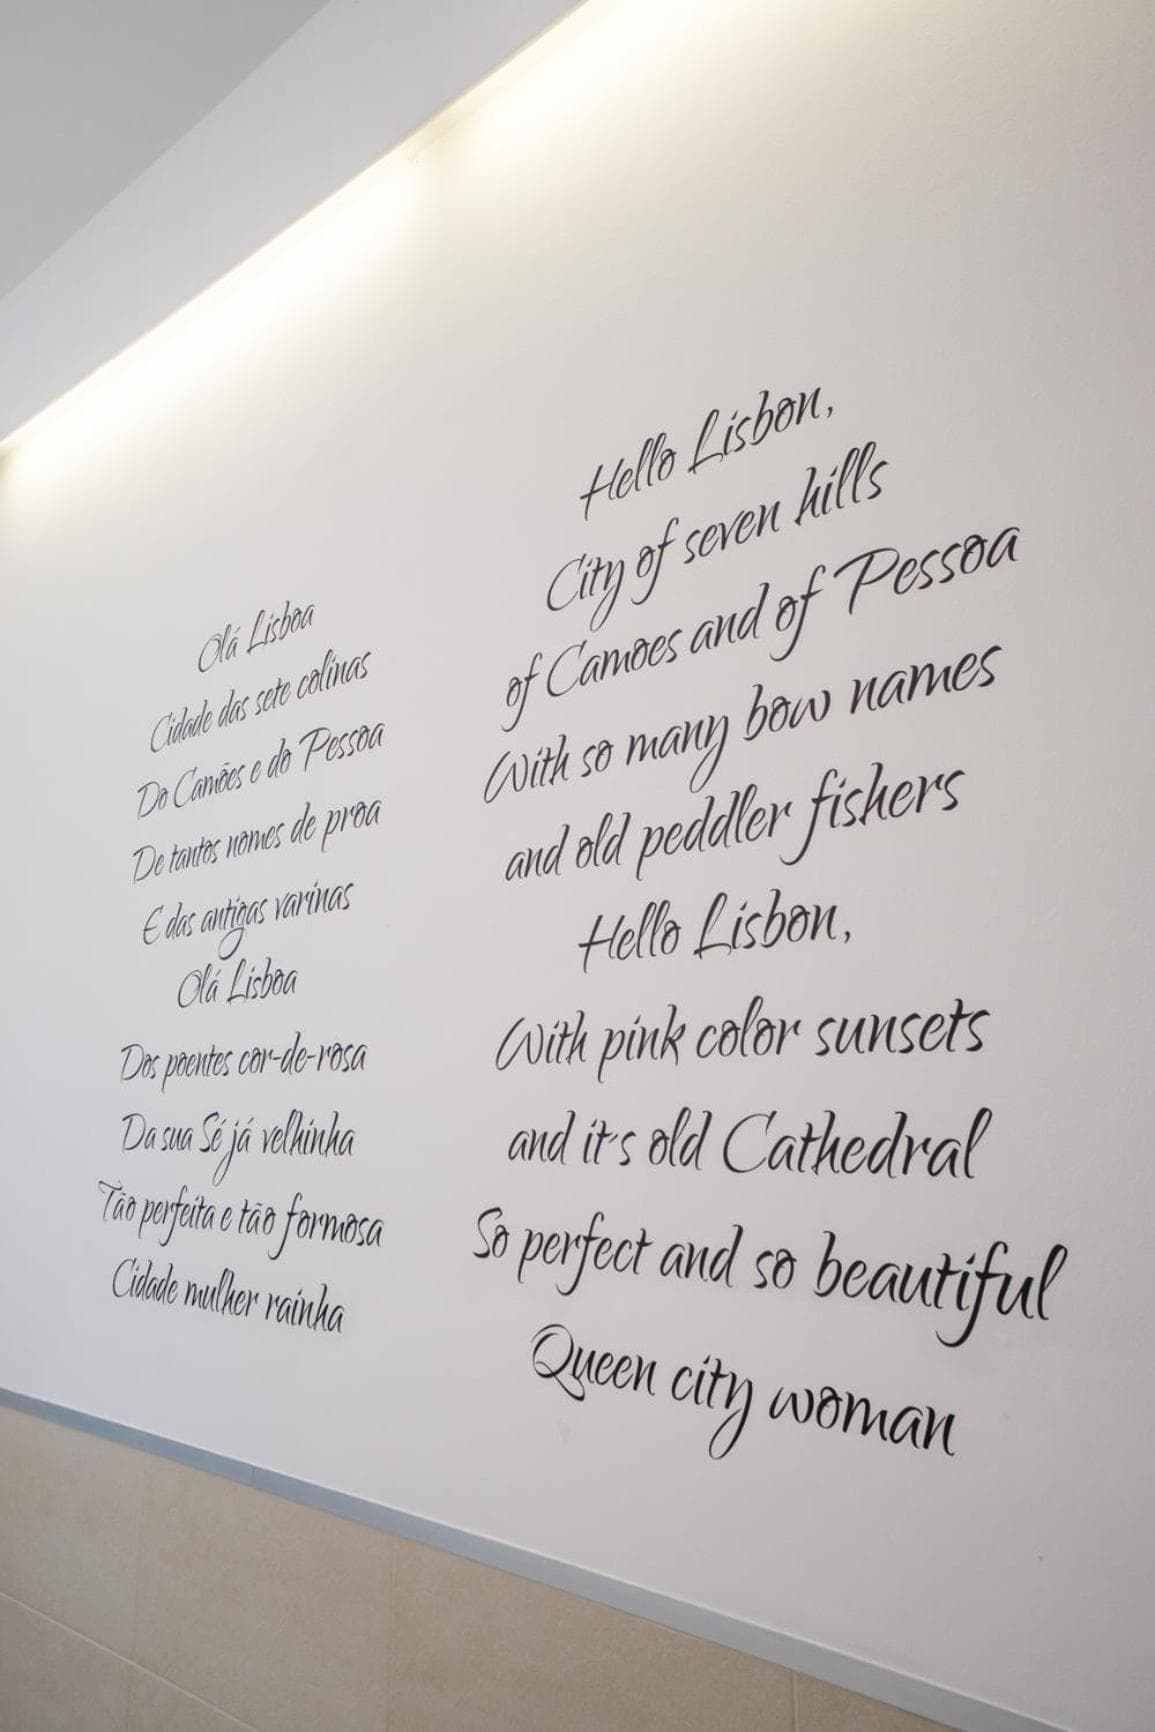 Olá Lisboa
Cidade das sete colinas
Do Camões e do Pessoa
De tantos nomes de proa
E das antigas varinas
Olá Lisboa
Dos poentes cor-de-rosa
Da sua Sé já velhinha
Tão perfeita e tão formosa
Cidade mulher rainha
Hello Lisbon,
City of seven hills
of Camoes and of Pessoa
With so many bow names
and old peddler fishers
Hello Lisbon,
With pink color sunsets
and it's old Cathedral
So perfect and so beautiful
Queen city woman